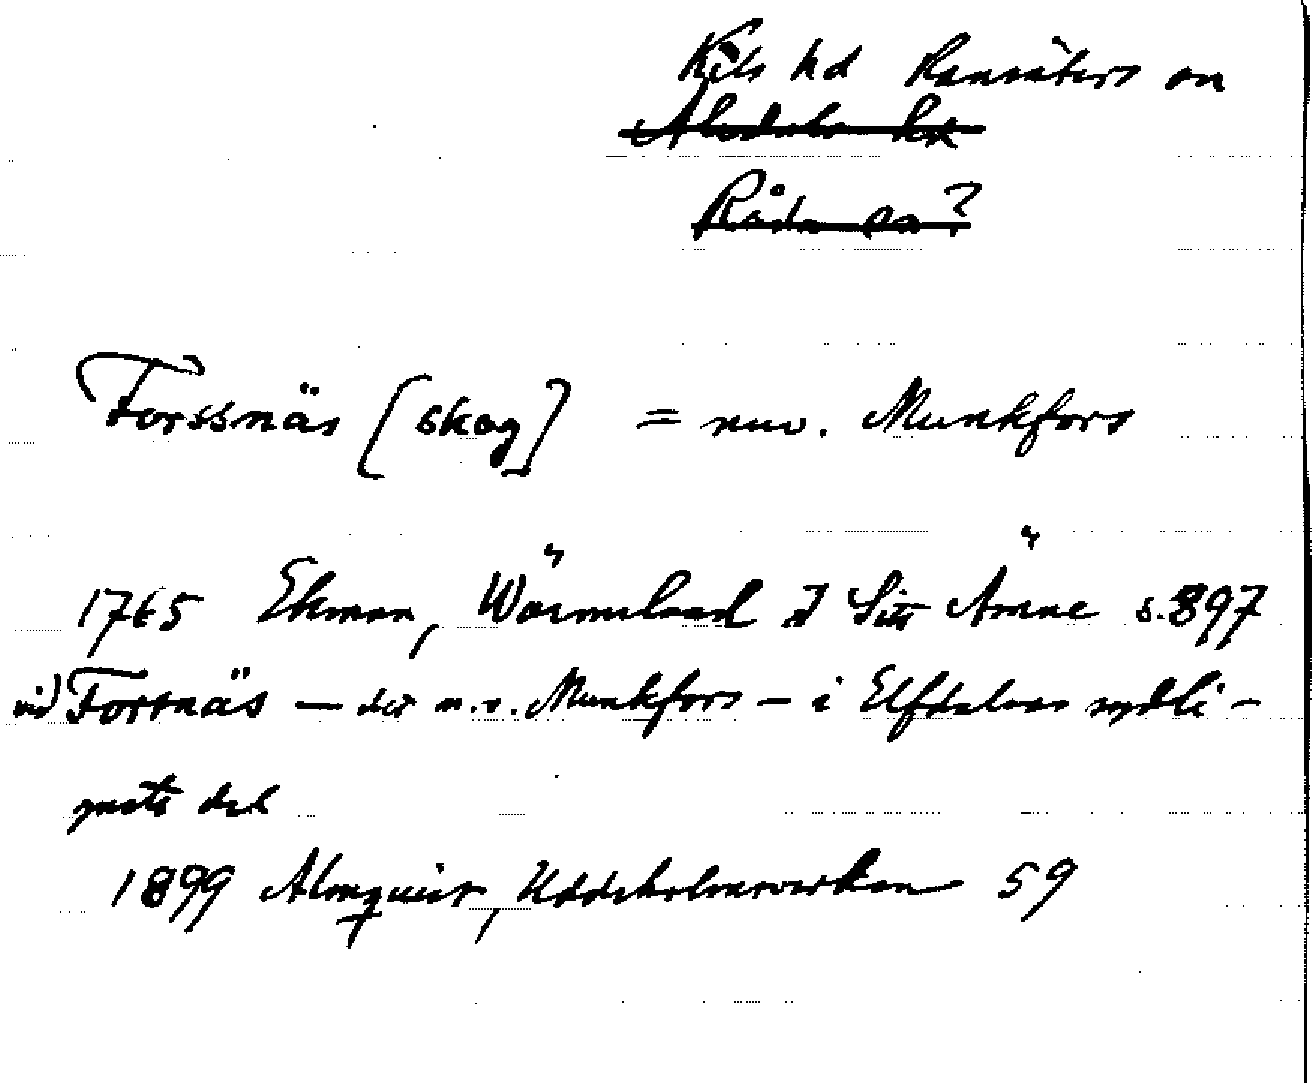 Kils hd Ransäters sn
Älvdals hd
Råda sn?
Forssnäs [skog] = nuv. Munkfors
1765 Ekman, Wärmeland I Sitt Ämne s. 897
vid Forsnäs — det n.v. Munkfors – i Elfdalens sydli-
gaste del
1899 Almquist, Uddeholmsverken 59